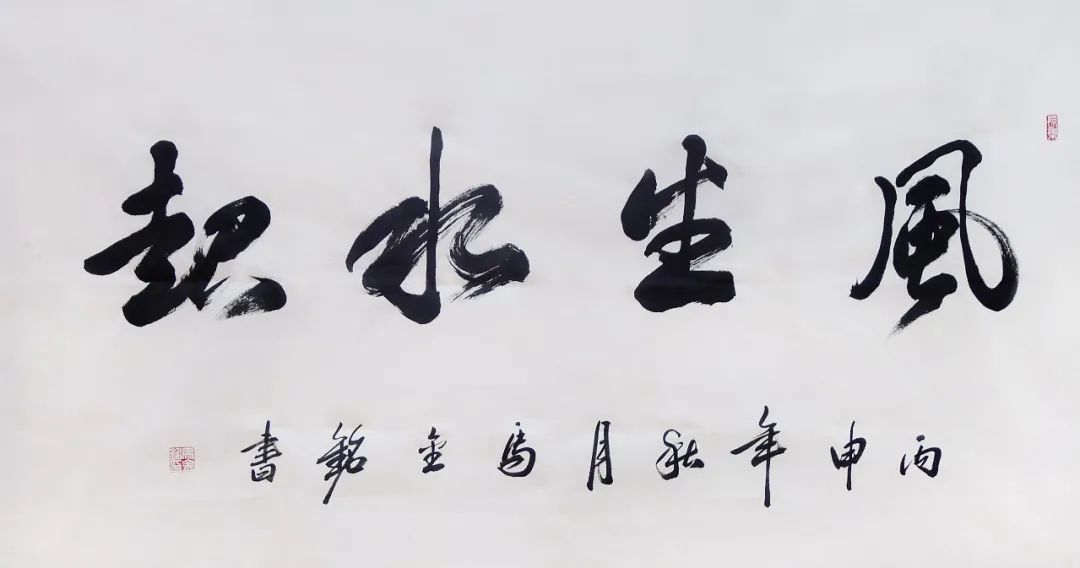 風生水起
丙申年秋月馬金銘書